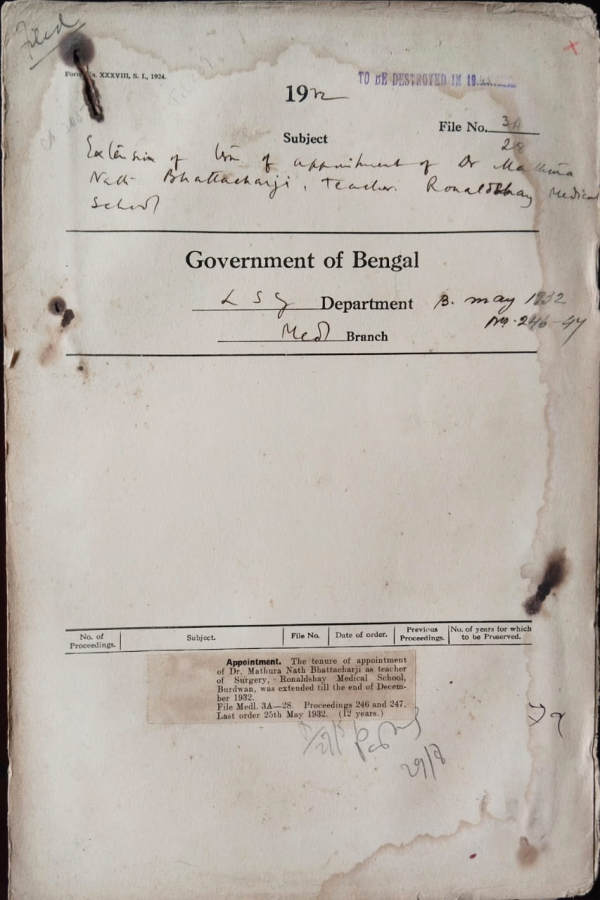 Filed
Form No. XXXVIII, S. I., 1924.
TO BE DESTROYED IN 19
1932
File No. 3A
28
Subject
Extension of term of appointment of Dr Mathura
Nath Bhattacharji, Teacher Ronaldshay Medical
School
Government of Bengal
L S G Department B. May 1932
No. 246-47
Medl Branch
No. of Proceedings. Subject. File No. Date of order. Previous Proceedings. No. of years for which to be Preserved.
Appointment. The tenure of appointment
of Dr. Mathura Nath Bhattacharji as teacher
of Surgery, Ronaldshay Medical School,
Burdwan, was extended till the end of Decem-
ber 1932.
File Medl. 3A—28. Proceedings 246 and 247.
Last order 25th May 1932. (12 years.)
29/8